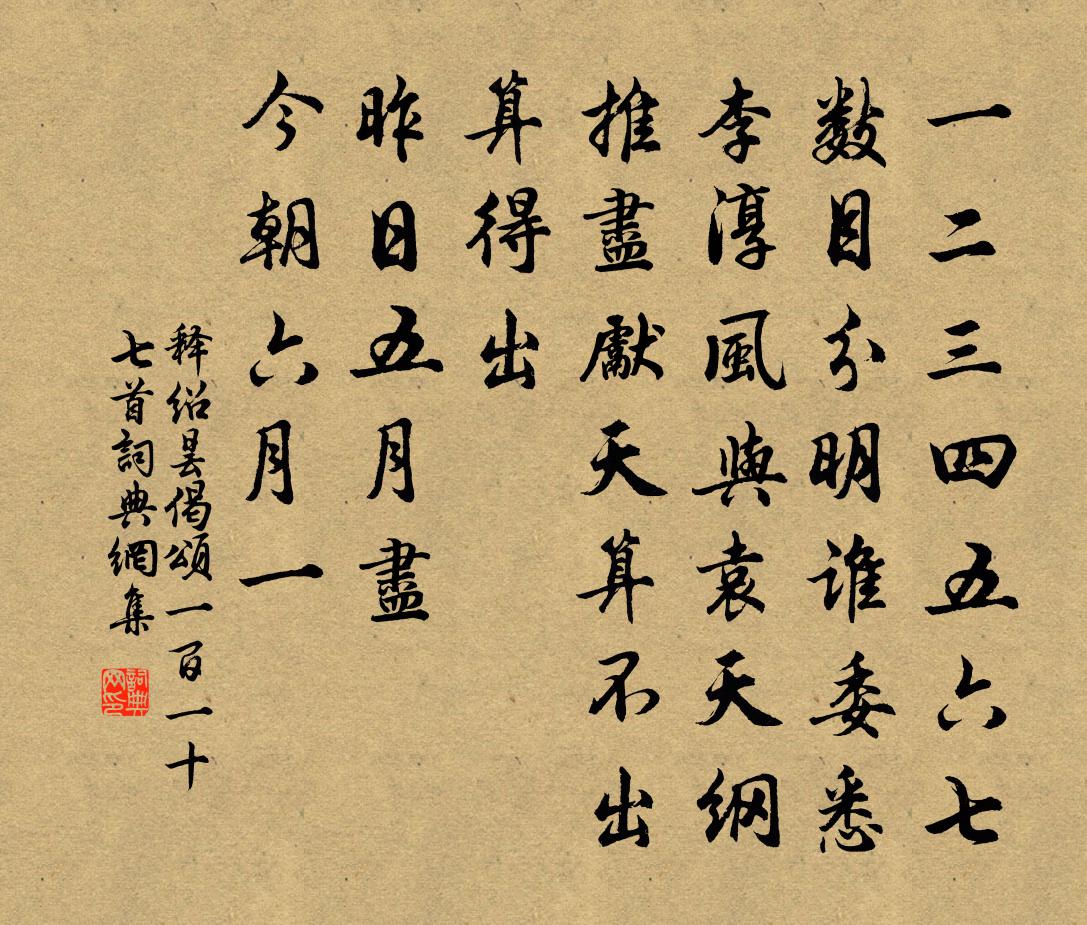 一二三四五六七
數目分明誰委悉
李淳風與袁天綱
推盡獻天算不出
算得出
昨日五月盡
今朝六月一
释绍昙偈頌一百一十
七首詞典網集
詞典
网印